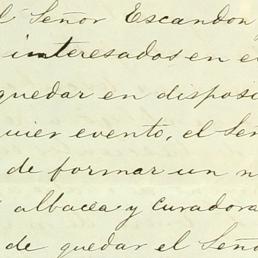 l Señor Escandon
interesados en e
quedar en disposi
uier evento, el Señ
de formar un n
albacea y curadora
de quedar el Seño